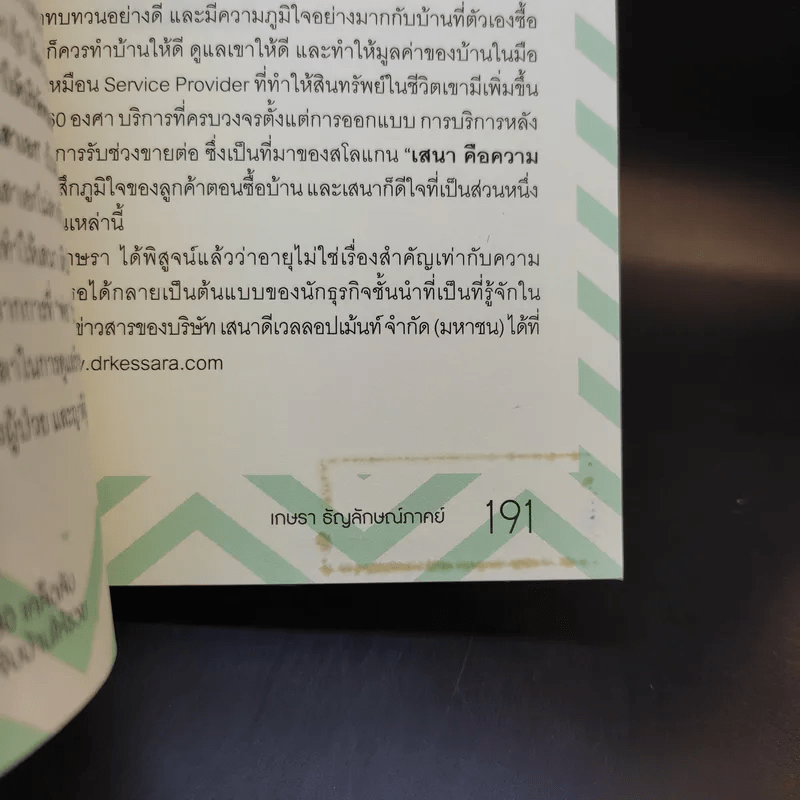 ทบทวนอย่างดี และมีความภูมิใจอย่างมากกับบ้านที่ตัวเองซื้อ
ก็ควรทำบ้านให้ดี ดูแลเขาให้ดี และทำให้มูลค่าของบ้านในมือ
เหมือน Service Provider ที่ทำให้สินทรัพย์ในชีวิตเขามีเพิ่มขึ้น
60 องศา บริการที่ครบวงจรตั้งแต่การออกแบบ การบริการหลัง
การรับช่วงขายต่อ ซึ่งเป็นที่มาของสโลแกน “เสนา คือความ
สึกภูมิใจของลูกค้าตอนซื้อบ้าน และเสนาก็ดีใจที่เป็นส่วนหนึ่ง
นเหล่านี้
กษรา ได้พิสูจน์แล้วว่าอายุไม่ใช่เรื่องสำคัญเท่ากับความ
อได้กลายเป็นต้นแบบของนักธุรกิจชั้นนำที่เป็นที่รู้จักใน
ข่าวสารของบริษัท เสนาดีเวลลอปเม้นท์ จำกัด (มหาชน) ได้ที่
.drkessara.com
ผู้ป่วย และญาติ
เกษรา ธัญลักษณ์ภาคย์ 191